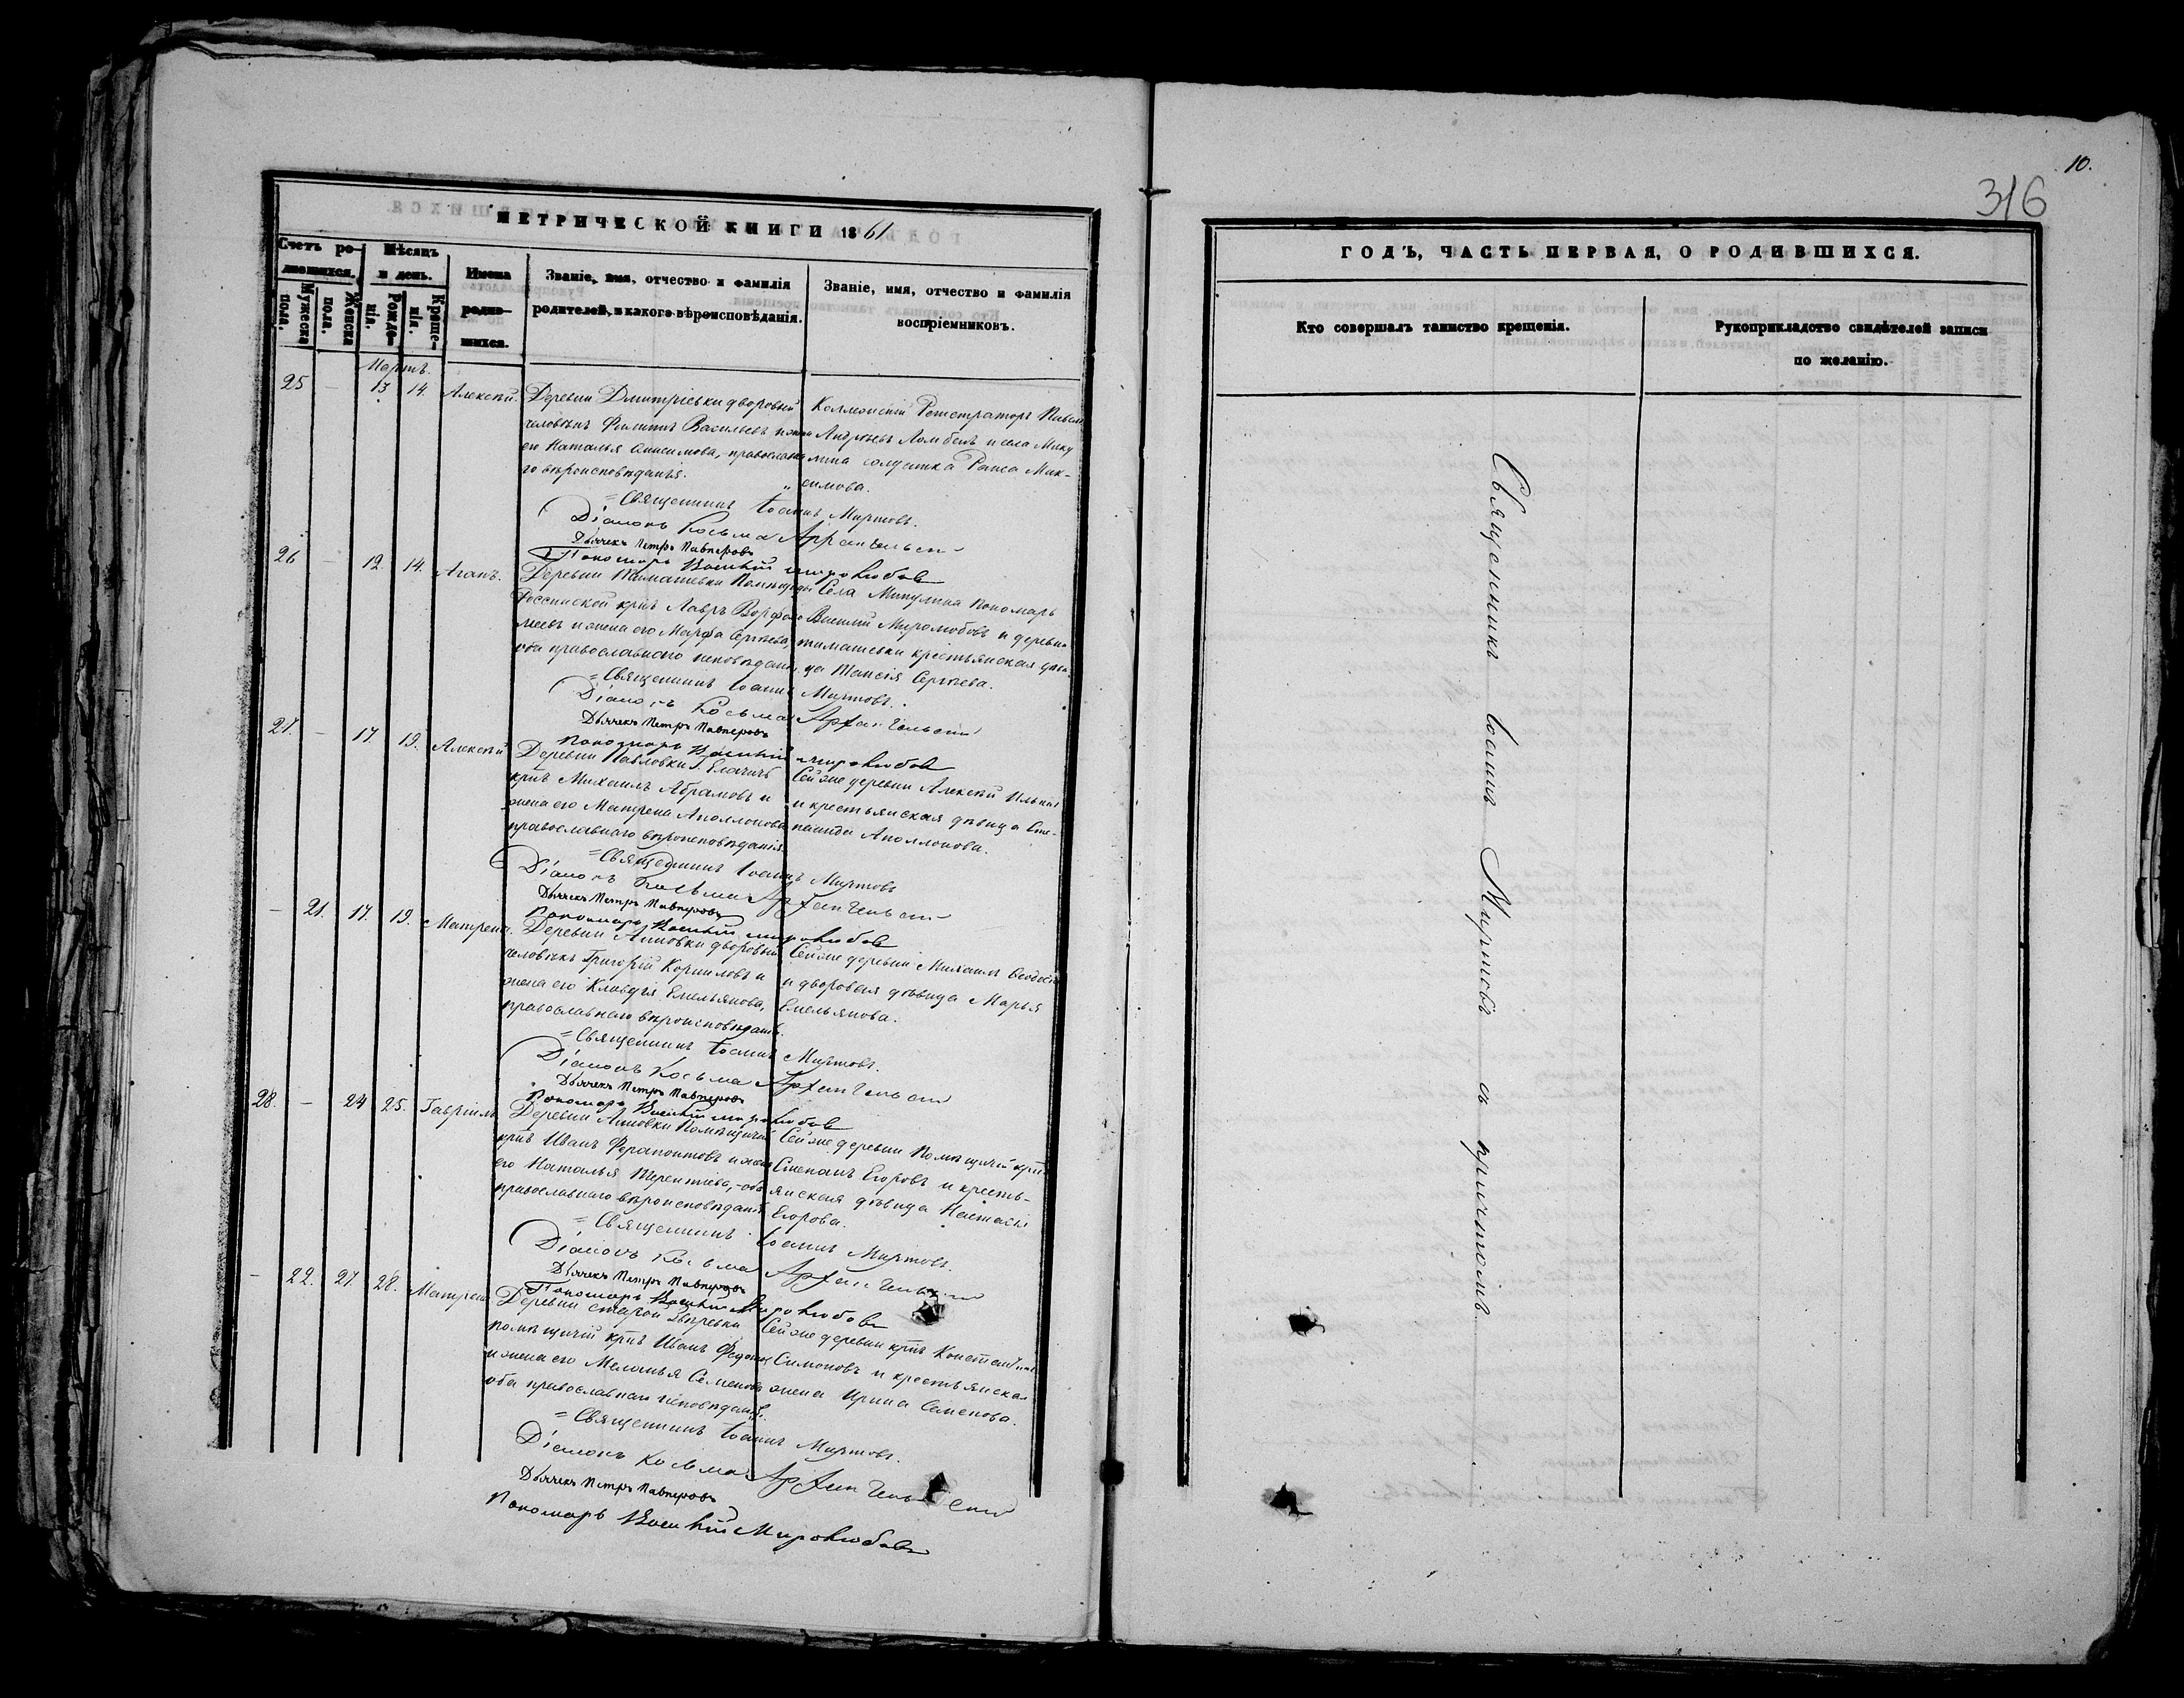 МЕТРИЧЕСКОЙ КНИГИ 1861
Счетъ родившихся.
Мужеска пола.
Женска пола.
Мѣсяцъ и день.
Рожденія.
Крещенія.
Имена родившихся.
Званіе, имя, отчество и фамилія
родителей, и какого вѣроисповѣданія.
Званіе, имя, отчество и фамилія
воспріемниковъ.
Мартъ.
25 — 13 14. Алексѣй.
Деревни Дмитріевки дворовый
человѣкъ Филиппъ Васильевъ и жена
его Наталья Анисимова, православна
го вѣроисповѣданія.
Коллежскій Регистраторъ Павелъ
Андреевъ и села Мику
лина солдатка Раиса Мак-
симова.
Священникъ Іоаннъ Миртовъ.
Діаконъ Косьма Архангельскій
Дьячекъ Петръ Павперовъ
Пономарь Василій Миролюбовъ
26 — 12. 14. Агапъ.
Деревни Тимашевки Помѣщицы
Россинской крнъ Лавръ Варфоло
меевъ и жена его Марфа Сергѣева,
оба православнаго исповѣданія
Села Микулина Пономарь
Василій Миролюбовъ и деревни
Тимашевки крестьянская дѣви
ца Таисія Сергѣева.
Священникъ Іоаннъ Миртовъ.
Діаконъ Косьма Архангельскій
Дьячекъ Петръ Павперовъ
Пономарь Василій Миролюбовъ
27. — 17. 19. Алексѣй
Деревни Павловки Г. Елачичъ
крнъ Михаилъ Абрамовъ и
жена его Матрена Аполлонова
православнаго вѣроисповѣданія.
Сей же деревни Алексѣй Ильинъ
и крестьянская дѣвица Сте-
панида Аполлонова.
Священникъ Іоаннъ Миртовъ
Діаконъ Косьма Архангельскій
Дьячекъ Петръ Павперовъ
Пономарь Василій Миролюбовъ
— 21. 17. 19. Матрена.
Деревни Анновки дворовый
человѣкъ Григорій Корниловъ и
жена его Клавдія Емельянова,
православнаго вѣроисповѣданія.
Сей же деревни Михаилъ
и дворовая дѣвица Марья
Емельянова.
Священникъ Іоаннъ Миртовъ.
Діаконъ Косьма Архангельскій
Дьячекъ Петръ Павперовъ
Пономарь Василій Миролюбовъ
28. — 24 25. Гавріилъ
Деревни Анновки Помѣщичій
крнъ Иванъ Ферапонтовъ и жена
его Наталья Терентьева, оба
православнаго вѣроисповѣданія
Сей же деревни Помѣщичій крнъ
Степанъ Егоровъ и кресть-
янская дѣвица Настасія
Егорова.
Священникъ Іоаннъ Миртовъ.
Діаконъ Косьма Архангельскій
Дьячекъ Петръ Павперовъ
Пономарь Василій Миролюбовъ
— 22. 27. 28. Матрена
Деревни старой
помѣщичій крнъ Иванъ
и жена его Меланья Семенова
оба православнаго исповѣданія.
Сей же деревни крнъ Константинъ
Симоновъ и крестьянская
жена Ирина Семенова.
Священникъ Іоаннъ Миртовъ.
Діаконъ Косьма Архангельскій
Дьячекъ Петръ Павперовъ
Пономарь Василій Миролюбовъ
10.
316
ГОДЪ, ЧАСТЬ ПЕРВАЯ, О РОДИВШИХСЯ.
Кто совершалъ таинство крещенія.
Рукоприкладство свидѣтелей записи
по желанію.
Священникъ Іоаннъ Миртовъ съ причтомъ.